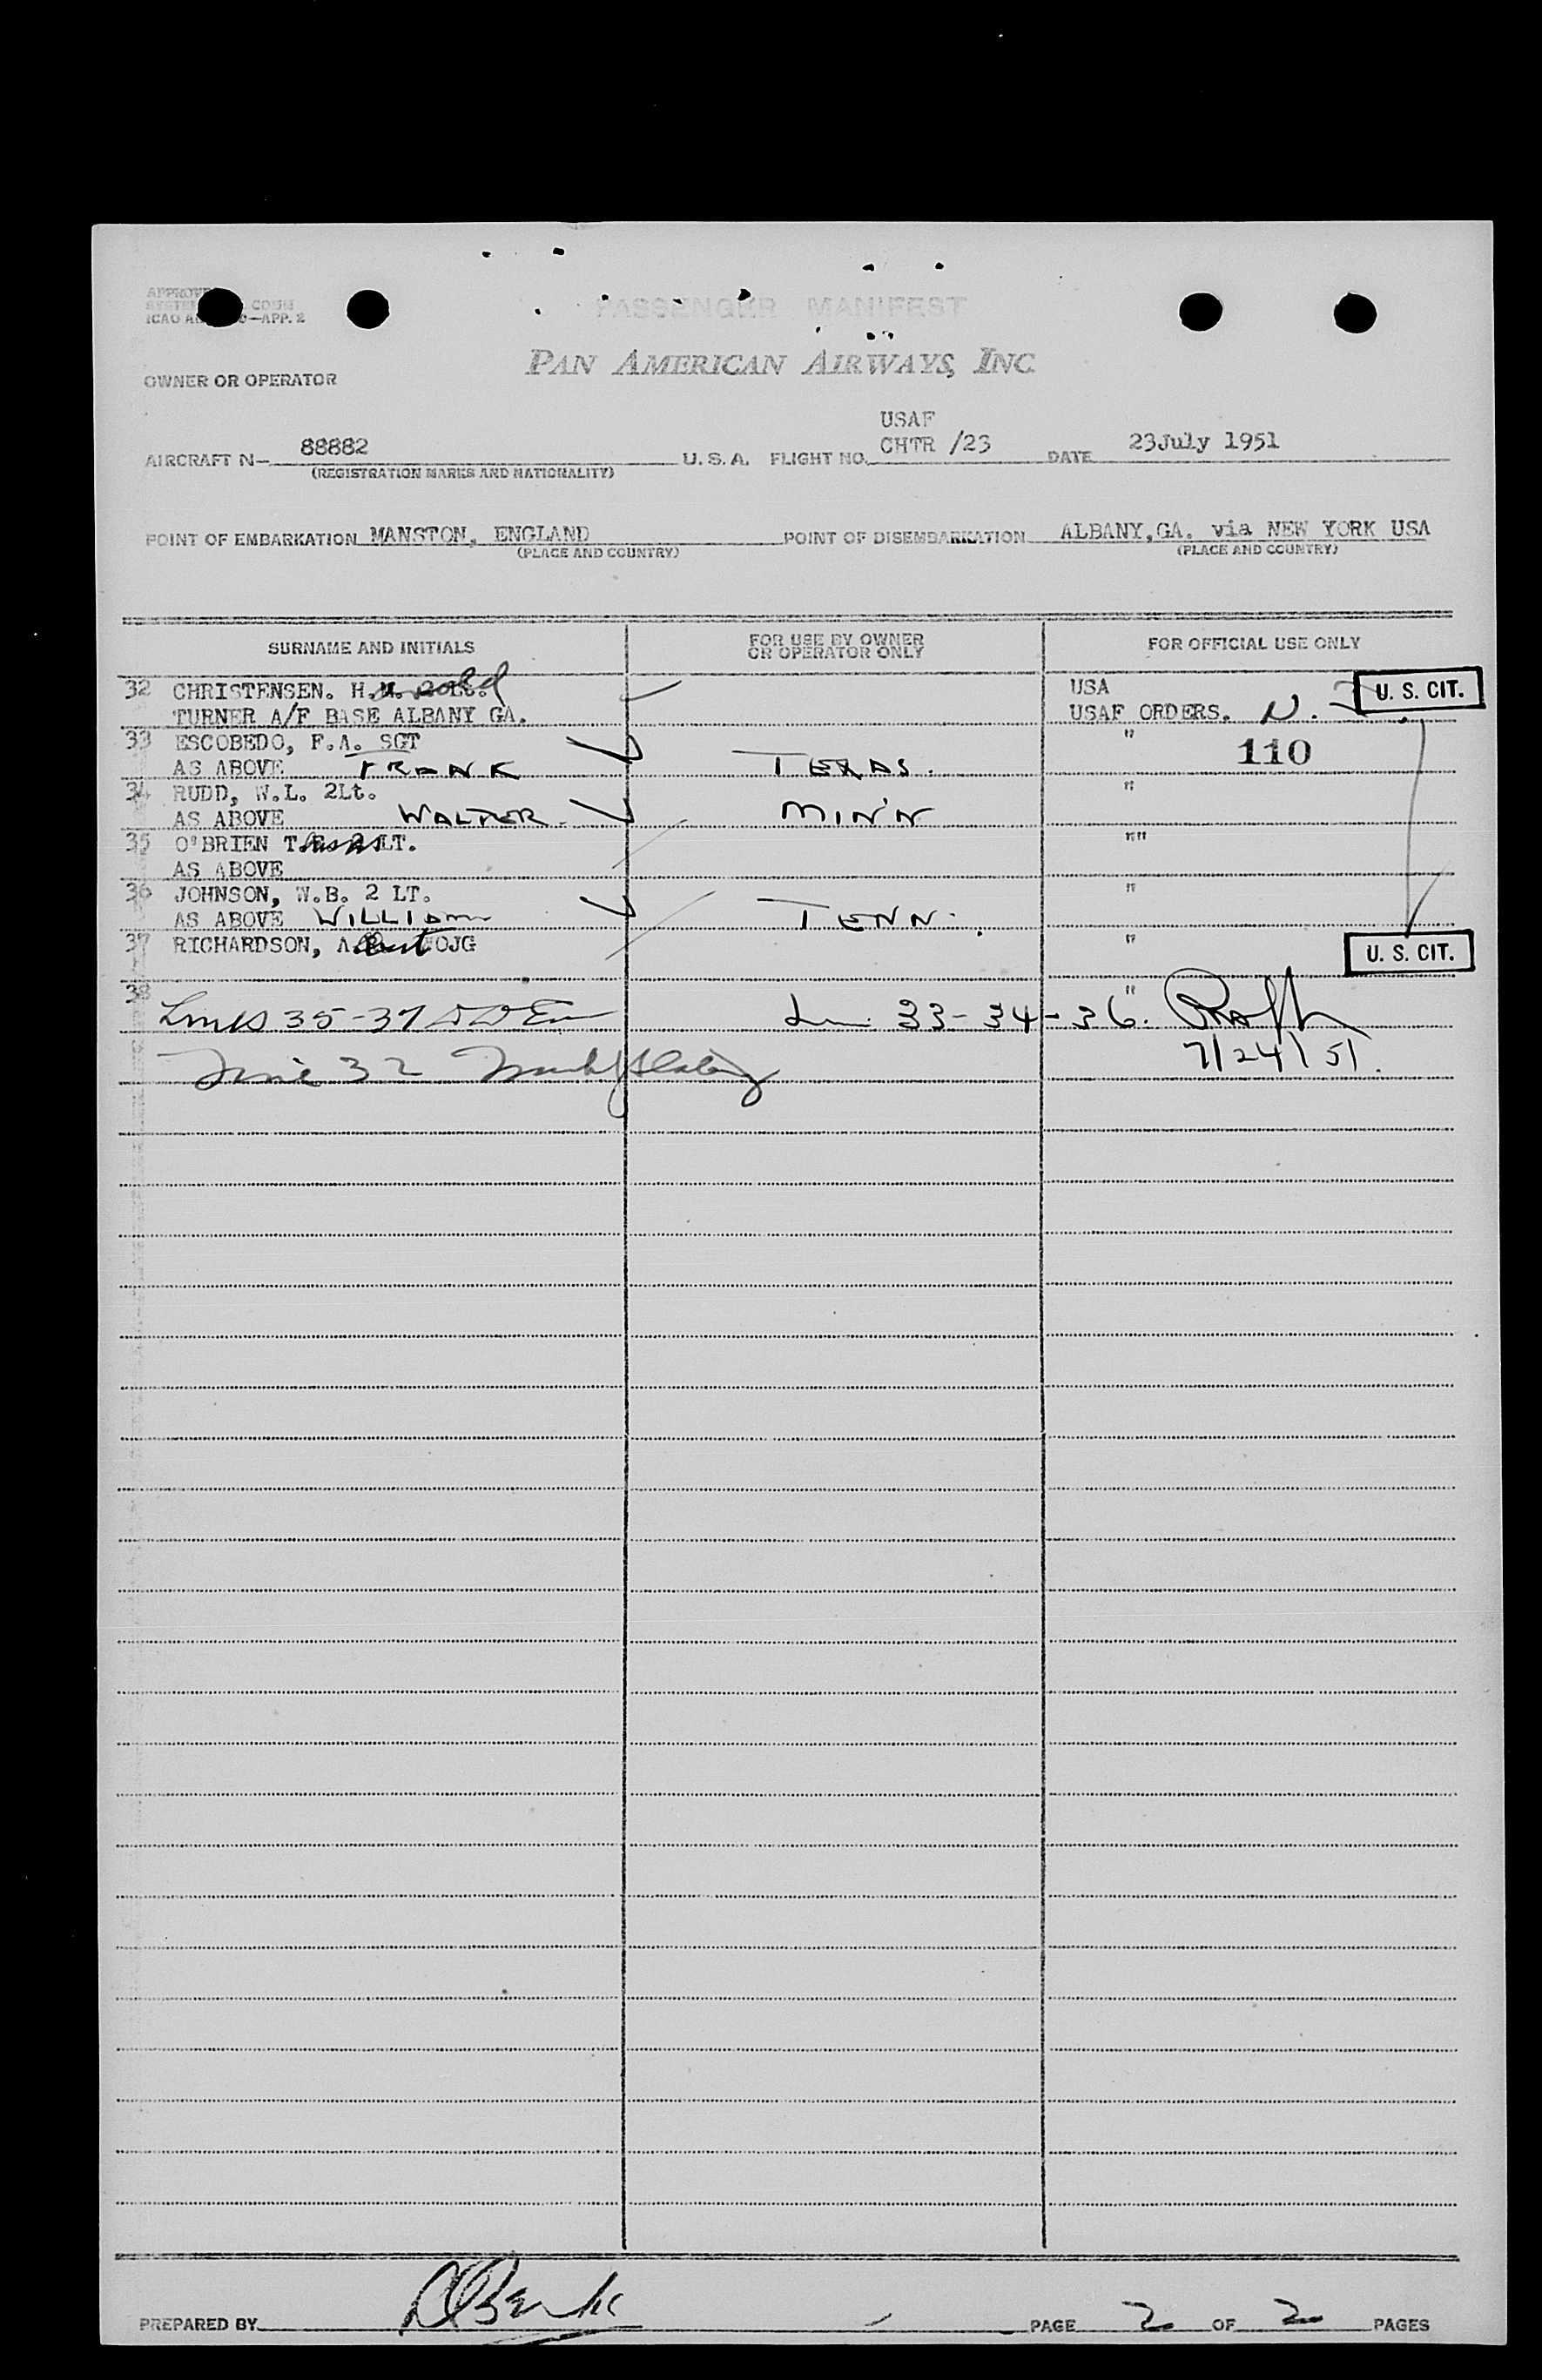 PASSENGER MANIFEST
ICAO
—APP. 2
PAN AMERICAN AIRWAYS, INC.
OWNER OR OPERATOR
USAF
AIRCRAFT N— 88882 U.S.A. FLIGHT NO. CHTR /23 DATE 23July 1951
(REGISTRATION MARKS AND NATIONALITY)
POINT OF EMBARKATION MANSTON, ENGLAND POINT OF DISEMBARKATION ALBANY,GA. via NEW YORK USA
(PLACE AND COUNTRY) (PLACE AND COUNTRY)
SURNAME AND INITIALS FOR USE BY OWNER OR OPERATOR ONLY FOR OFFICIAL USE ONLY
32 CHRISTENSEN. H. USA U. S. CIT.
TURNER A/F BASE ALBANY GA. USAF ORDERS. N.
33 ESCOBEDO, F.A. SGT " 110
AS ABOVE FRANK TEXAS.
34 RUDD, W.L. 2Lt. "
AS ABOVE WALTER MIN'N
35 O'BRIEN T. LT. ""
AS ABOVE
36 JOHNSON, W.B. 2 LT. "
AS ABOVE WILLIAM TENN.
37 RICHARDSON, A. OJG " U. S. CIT.
38 "
Lines 35-37 33-34-36.
Line 32 7/24/51.
PREPARED BY PAGE 2 OF 2 PAGES